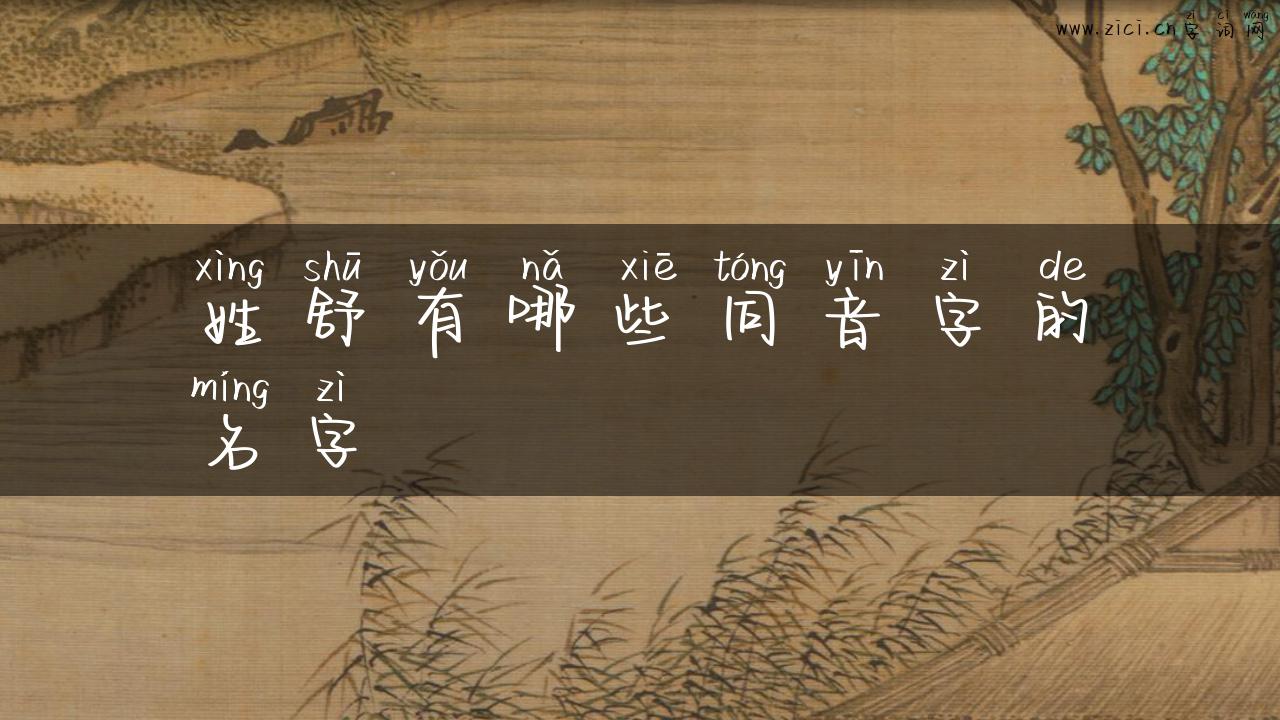 zì cí wǎng
www.zici.cn字词网
xìng shū yǒu nǎ xiē tóng yīn zì de
姓舒有哪些同音字的
míng zì
名字